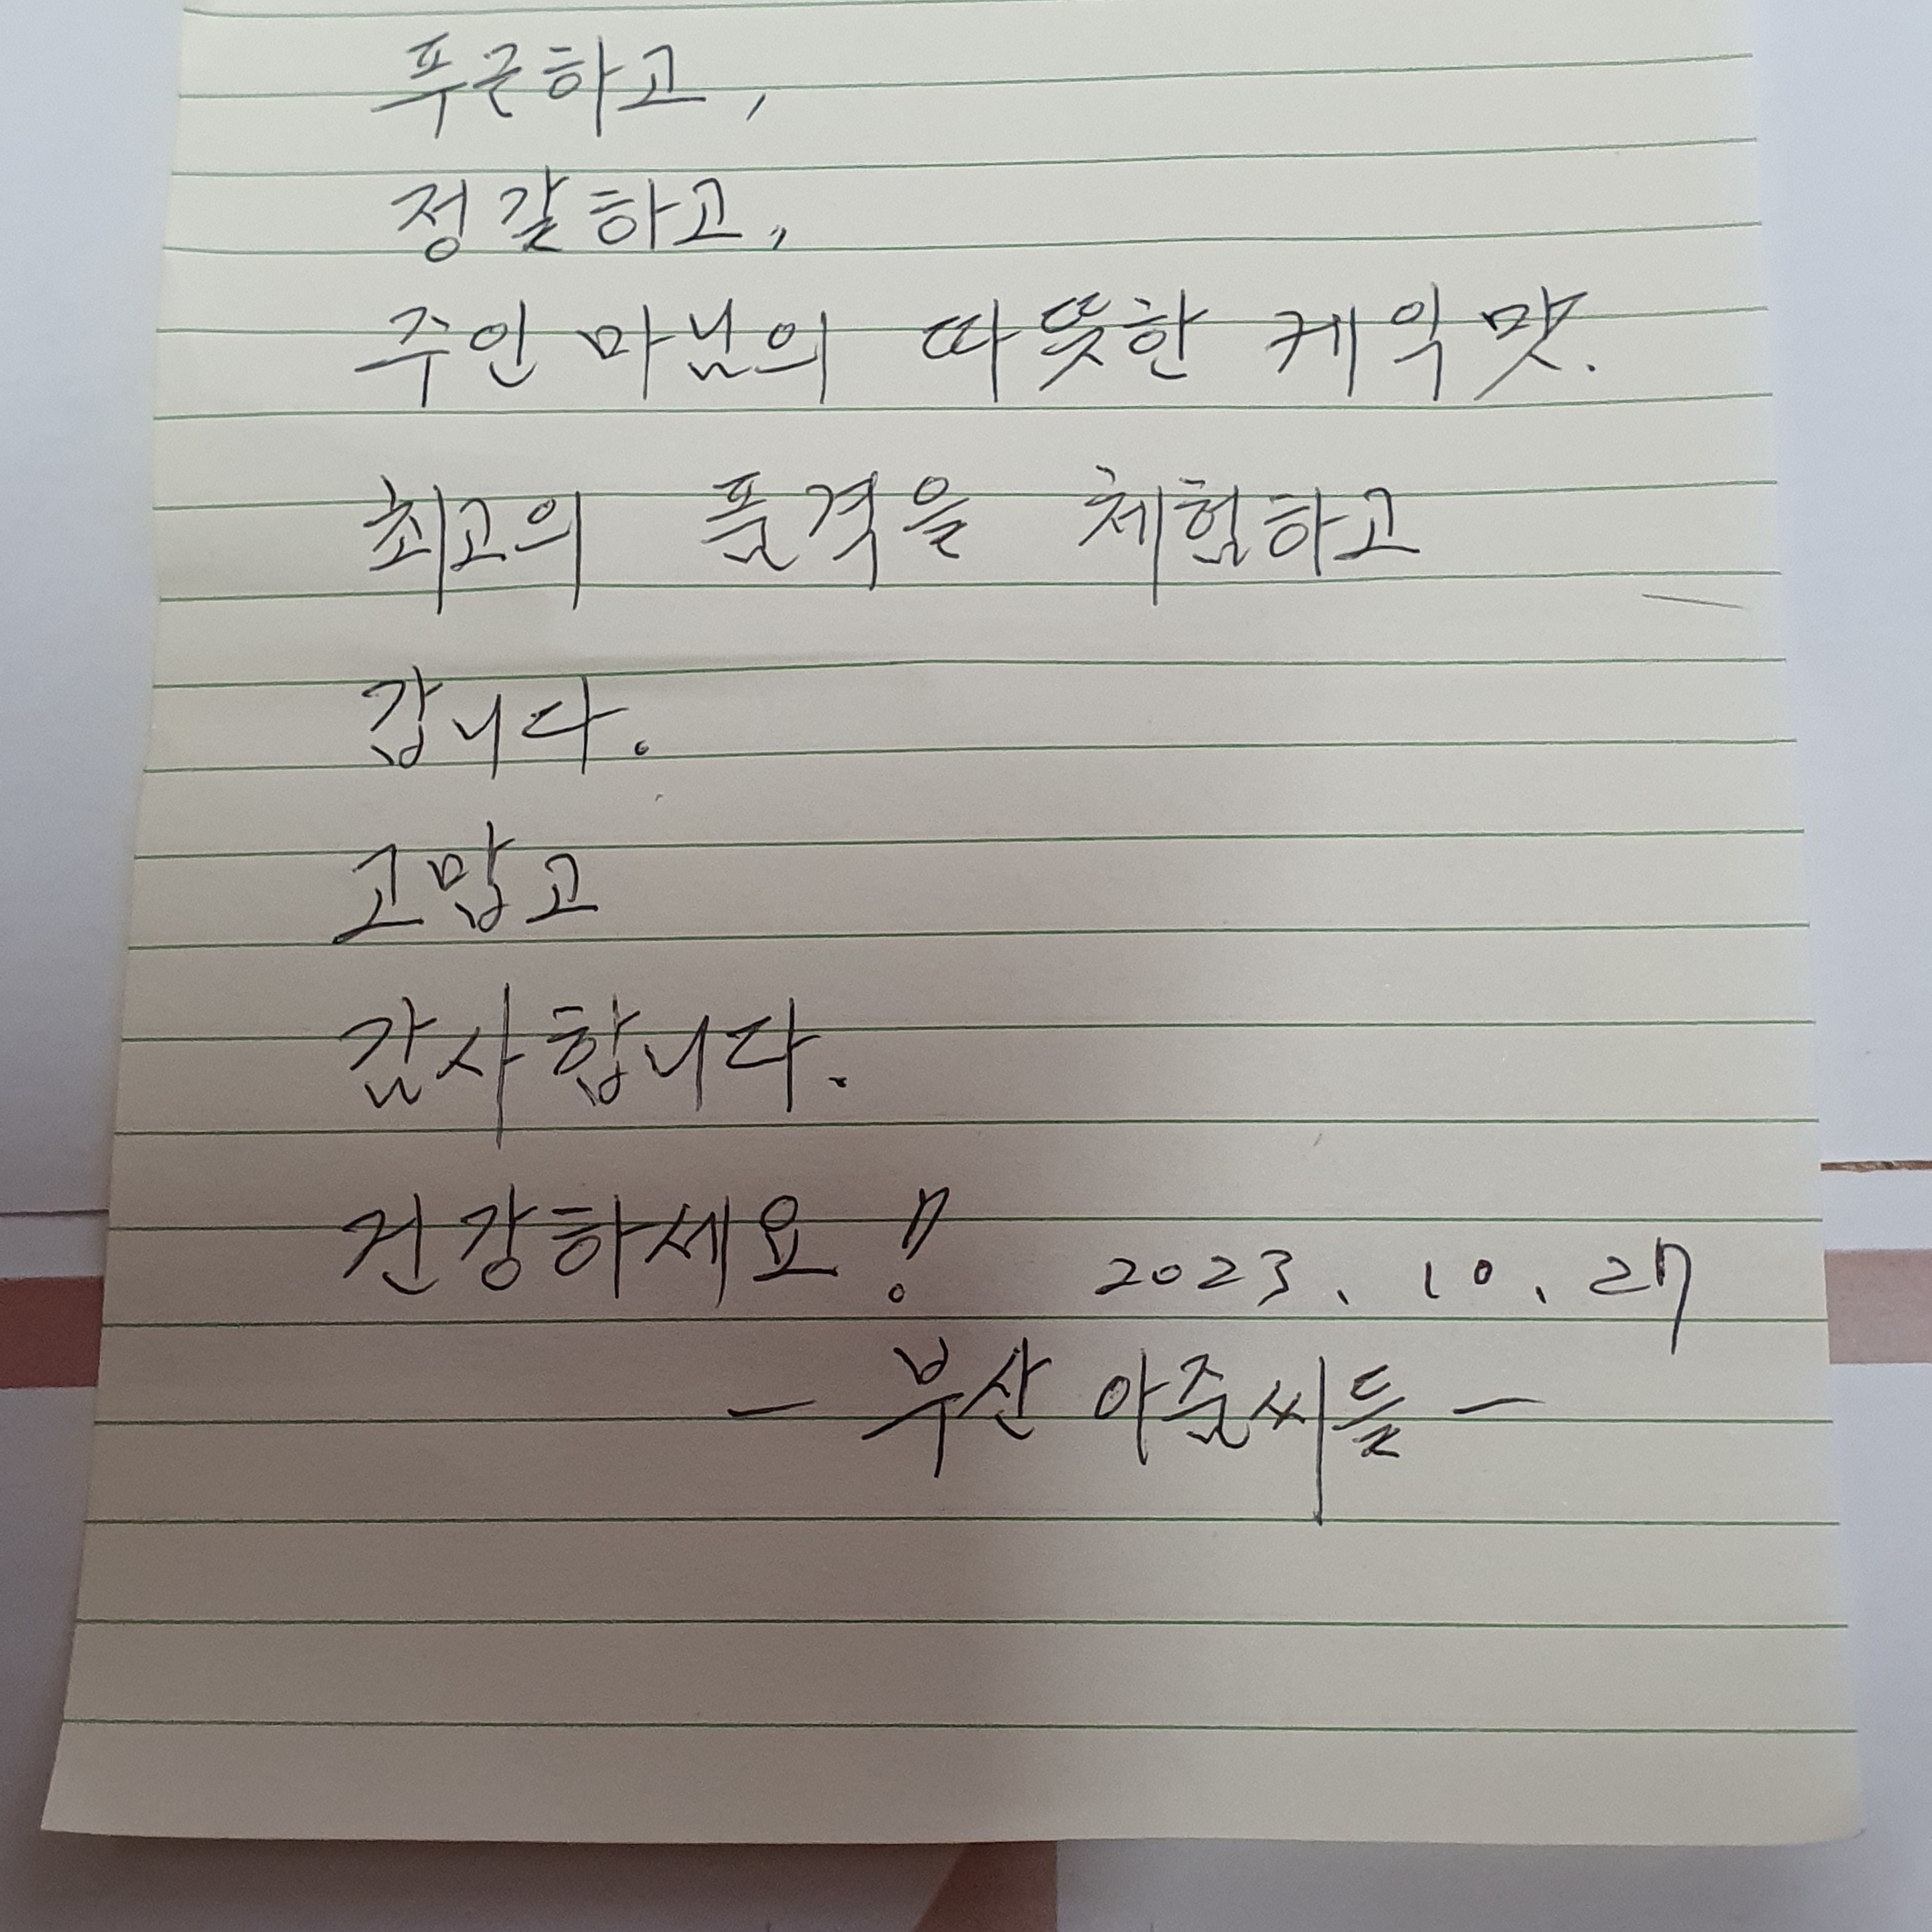 푸근하고,
정갈하고,
주인 마님의 따뜻한 케익맛.
최고의 품격을 체험하고
갑니다.
고맙고
감사합니다.
건강하세요!! 2023. 10. 27
- 부산 아줌씨들 -